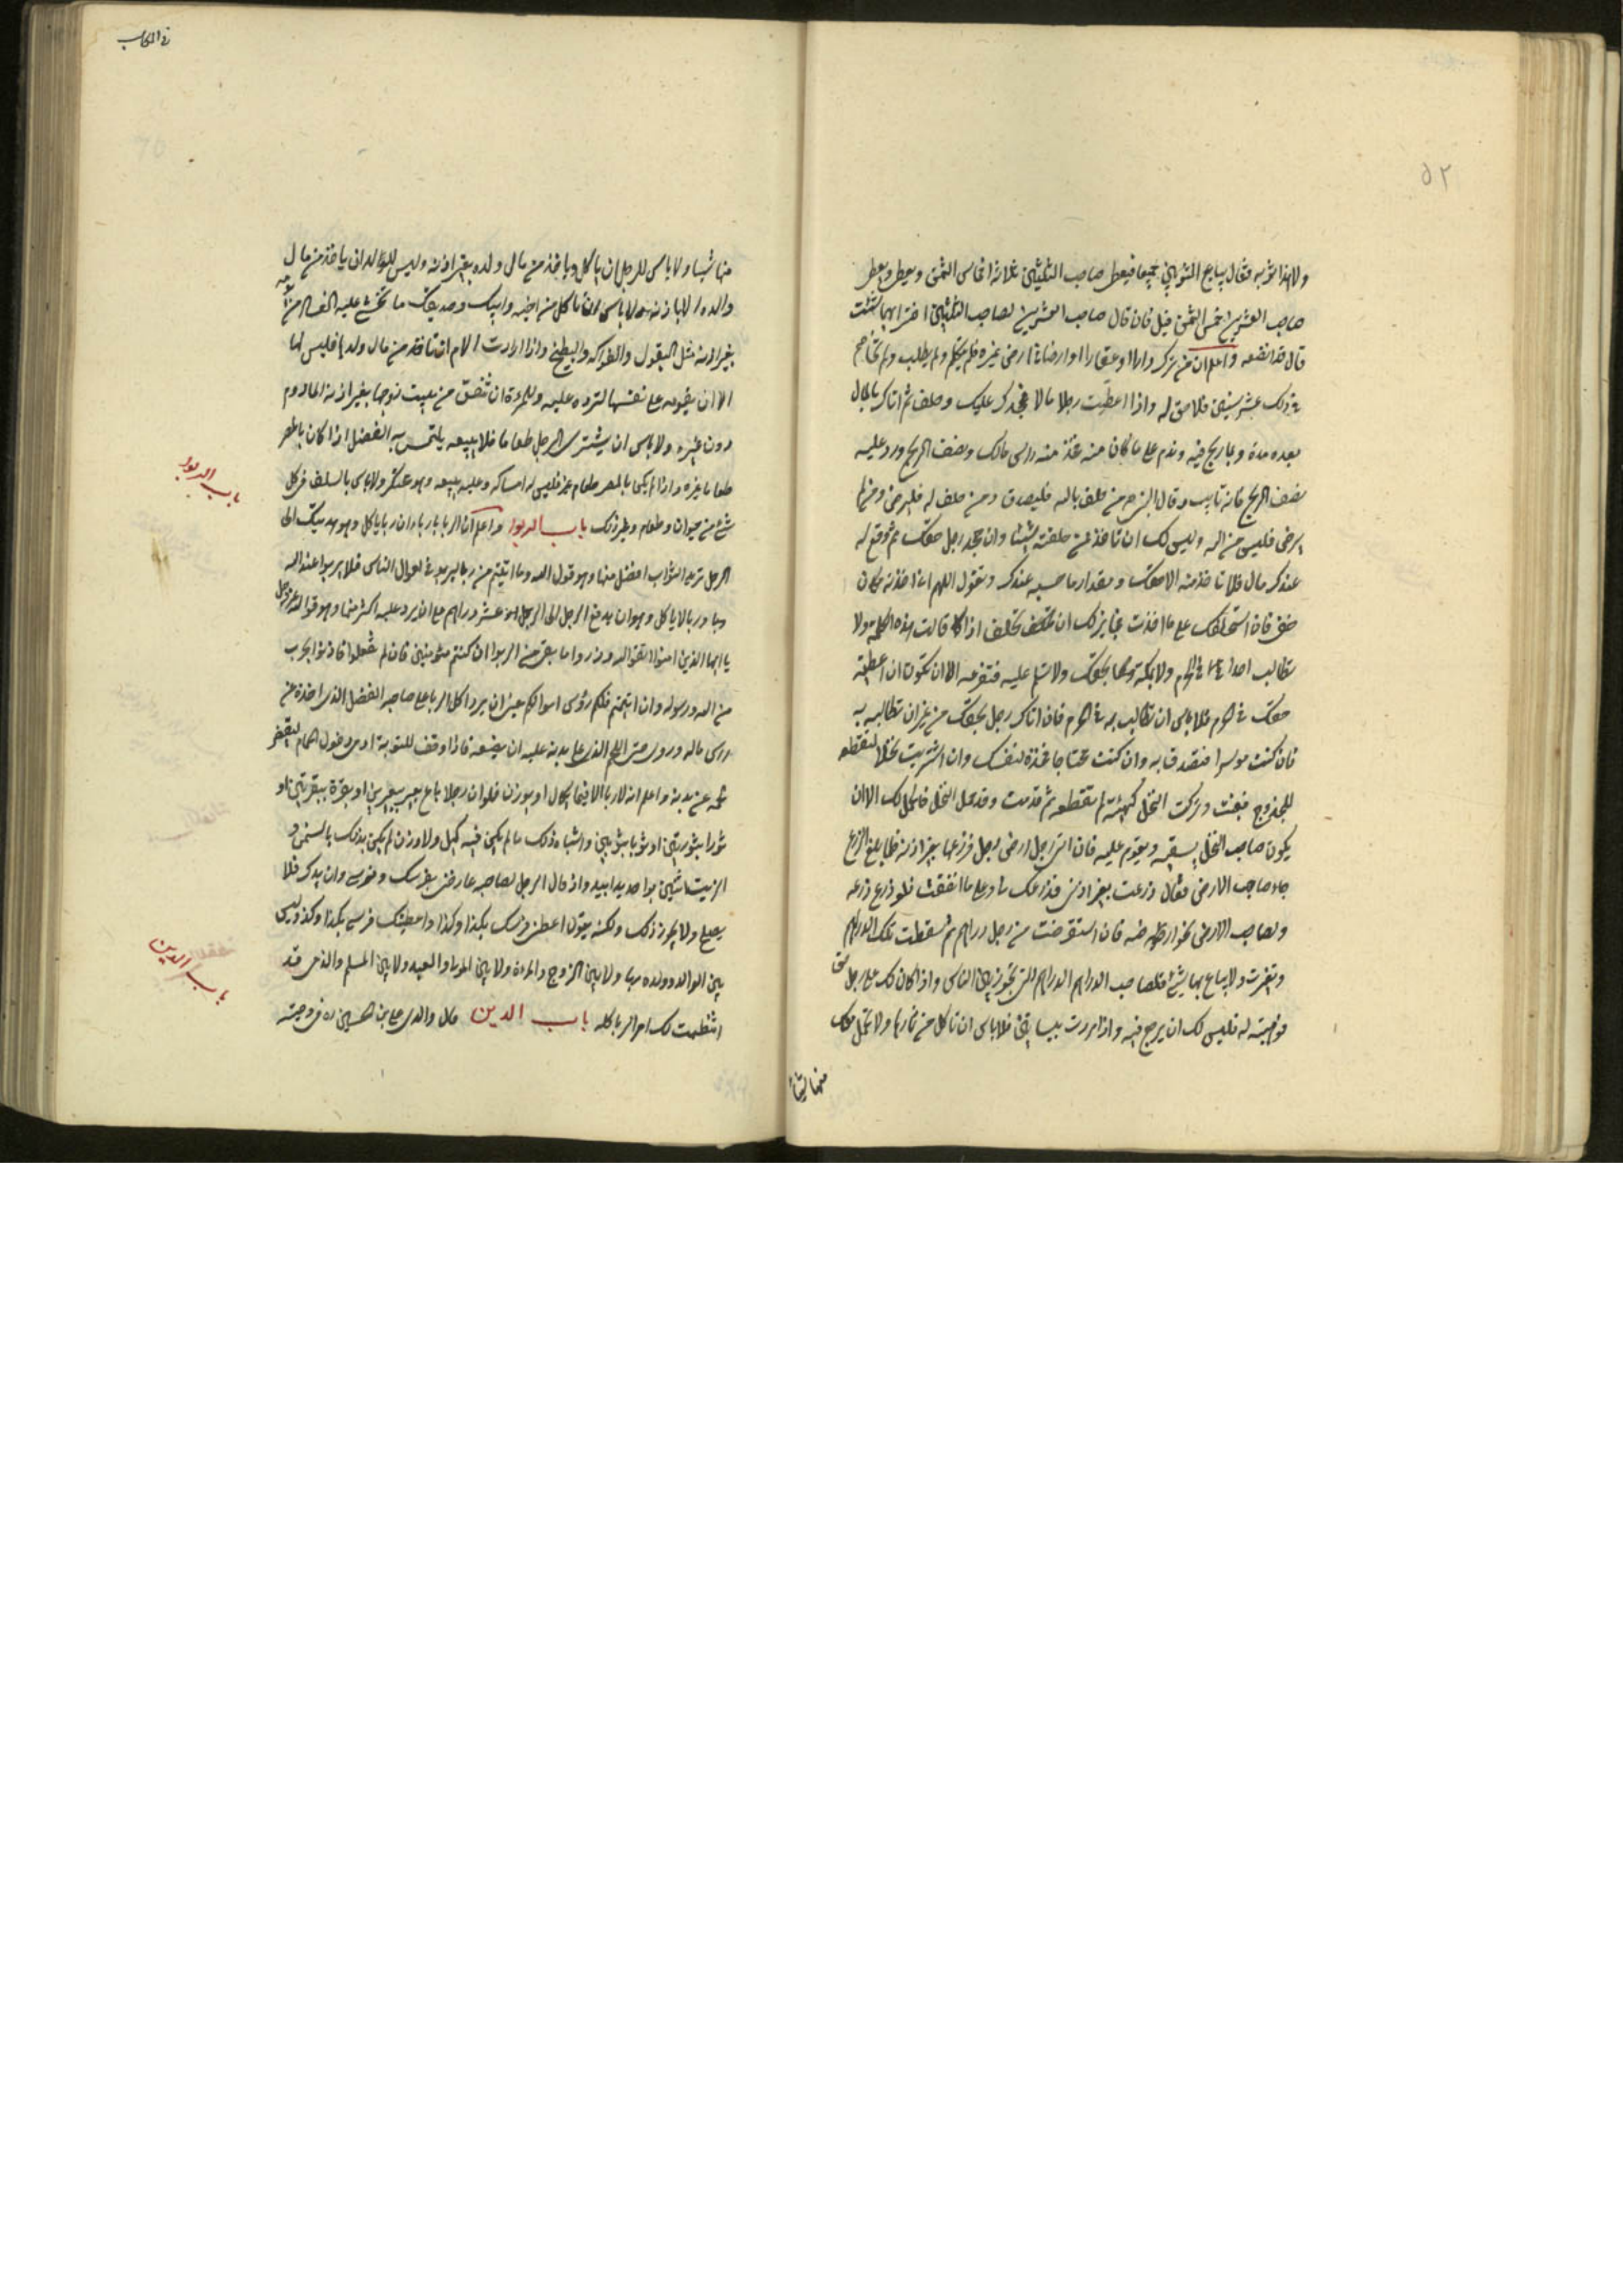 ٥٢
ولا هذا ثوبه فقال يباع الثوبان جميعا فيعطى صاحب الثلثين ثلاثة اخماس الثمن ويعطى
صاحب العشرين خمس الثمن قيل فان قال صاحب العشرين لصاحب الثلثين اختر ايهما شئت
قال قد انصفه واعلم ان من ترك دارا او عقارا او ارضا في يد غيره فلم يتكلم ولم يطلب ولم يخاصم
في ذلك عشر سنين فلا حق له واذا اعطيت رجلا مالا فجحدك عليك وحلف ثم اتاك بالمال
بعده مدة وبما ربح فيه وندم على ما كان منه فخذ منه راس مالك ونصف الربح ورد عليه
نصف الربح فانه تايب وقال النبي ص من حلف بالله فليصدق ومن حلف له فليرض ومن لم
يرض فليس من الله وليس لك ان تاخذ من حلفته شيئا وان جحد رجل حقك ثم وقع له
عندك مال فلا تاخذ منه الا حقك ومقدار ما حبسه عندك وتقول اللهم اني اخذته مكان
حقي فان استحلفك على ما اخذت فجايز لك ان تحلف اذا قلت هذه الكلمة ولا
تطالب احدا في الحرم ولا بمكة بحقك ولا تسلم عليه فتفزعه الا ان تكون ان اعطيته
حقك في الحرم فلا باس ان تطالب به في الحرم فان اتاك رجل بحقك من غير ان تطالبه به
فان كنت موسرا فتصدق به وان كنت محتاجا فخذه لنفسك وان اشتريت نخلا لتقطعه
للجذوع فغبت وتركت النخل كهيئته لم تقطعه ثم قدمت وقد حمل النخل فالحمل لك الا ان
يكون صاحب النخل يسقيه ويقوم عليه فان اتى رجل ارض رجل فزرعها بغير اذنه فلما بلغ الزرع
جاء صاحب الارض فقال زرعت بغير اذني فزرعك لي وعلي ما انفقت فللزارع زرعه
ولصاحب الارض كراء ارضه فان استقرضت من رجل دراهم ثم سقطت تلك الدراهم
وتغيرت ولا يباع بها شئ فلصاحب الدراهم الدراهم التي تجوز بين الناس واذا كان لك على رجل حق
فوهبته له فليس لك ان ترجع فيه واذا مررت ببساتين فلا باس ان تاكل من ثمارها ولا تحمل معك
منها شيئا
منها شيئا ولا باس للرجل ان ياكل وياخذ من مال ولده بغير اذنه وليس للولد ان ياخذ من مال
والده الا باذنه ولا باس ان تاكل من اخيه وابيك وصديقك ما تخشى عليه الفساد من
بغير اذنه مثل البقول والفواكه والبطيخ واذا ارادت الام ان تاخذ من مال ولدها فليس لها
الا ان تقومه على نفسها لترده عليه وللمرأة ان تنفق من بيت زوجها بغير اذنه المادوم
دون غيره ولا باس ان يشتري الرجل طعاما فلا يبيعه يلتمس به الفضل اذا كان بالمصر
طعام غيره واذا لم يكن بالمصر طعام غيره فليس له امساكه وعليه بيعه وهو محتكر ولا باس بالسلف في كل
شئ من حيوان وطعام وغير ذلك باب الربوا واعلم ان الربا رباءان ربا ياكل وهو هديتك الى
الرجل تريد الثواب افضل منها وهو قول الله وما اتيتم من ربا ليربو في اموال الناس فلا يربوا عند الله
وربا لا ياكل وهو ان يدفع الرجل الى الرجل عشر دراهم على ان يرد عليه اكثر منها وهو قول الله عز وجل
يا ايها الذين امنوا اتقوا الله وذروا ما بقي من الربوا ان كنتم مؤمنين فان لم تفعلوا فاذنوا بحرب
من الله ورسوله وان تبتم فلكم رؤس اموالكم عنى ان يرد اكل الربا على صاحبه الفضل الذي اخذه من
راس ماله وروى حتى اللحم الذي على بدنه عليه ان يضعه فاذا وفق للتوبة ادمن دخول الحمام لينقص
لحمه عن بدنه واعلم انه لا ربا الا فيما يكال او يوزن فلو ان رجلا باع بعير ببعيرين او بقرة ببقرتين او
ثورا بثورين او ثوبا بثوبين واشباه ذلك مما لم يكن فيه كيل ولا وزن لم يكن بذلك باس
الزيت اثنين بواحد يدا بيد واذ قال الرجل لصاحبه عارضني بفرسك وفرسي وازيدك فلا
يصلح ولا يجوز ذلك ولكنه يقول اعطني فرسك بكذا وكذا واعطيتك فرسي بكذا وكذا وليس
بين الوالد وولده ربا ولا بين الزوج والمرأة ولا بين المولى والعبد ولا بين المسلم والذمي فقد
انتظمت لك امر الربا كله باب الدين قال والدي علي بن الحسين ره في وصيته
باب الربوا
باب الدين